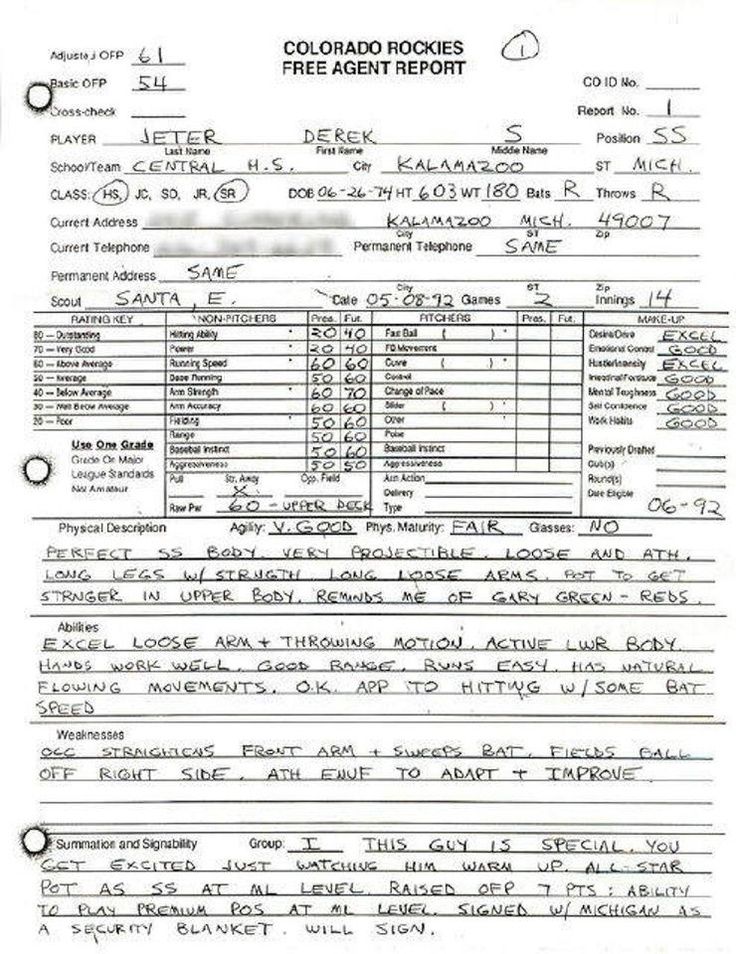 Adjusted OFP 61
COLORADO ROCKIES
FREE AGENT REPORT
1
Basic OFP 54
CO ID No.
Cross-check
Report No. 1
PLAYER JETER DEREK S Position SS
Last Name First Name Middle Name
School/Team CENTRAL H.S. City KALAMAZOO ST MICH.
CLASS: HS, JC, SO, JR, SR DOB 06-26-74 HT 603 WT 180 Bats R Throws R
Current Address KALAMAZOO MICH. 49007
City ST Zip
Current Telephone Permanent Telephone SAME
Permanent Address SAME
City ST Zip
Scout SANTA, E. Date 05-08-92 Games 2 Innings 14
RATING KEY NON-PITCHERS Pres. Fut. PITCHERS Pres. Fut. MAKE-UP
80 — Outstanding Hitting Ability * 20 40 Fast Ball ( ) * Desire/Drive EXCEL
70 — Very Good Power * 20 40 FB Movement Emotional Control GOOD
60 — Above Average Running Speed 60 60 Curve ( ) * Hustle/Intensity EXCEL
50 — Average Base Running 50 60 Control Intestinal Fortitude GOOD
40 — Below Average Arm Strength 60 70 Change of Pace Mental Toughness GOOD
30 — Well Below Average Arm Accuracy 60 60 Slider ( ) * Self Confidence GOOD
20 — Poor Fielding 50 60 Other Work Habits GOOD
Range 50 60 Poise
Use One Grade Baseball Instinct 50 60 Baseball Instinct Previously Drafted
Grade On Major Aggressiveness 50 50 Aggressiveness Club(s)
League Standards Pull Str. Away Opp. Field Arm Action Round(s)
Not Amateur X Delivery Date Eligible
Raw Pwr 60 - UPPER DECK Type 06-92
Physical Description Agility: V. GOOD Phys. Maturity: FAIR Glasses: NO
PERFECT SS BODY. VERY PROJECTIBLE. LOOSE AND ATH.
LONG LEGS W/ STRNGTH. LONG LOOSE ARMS. POT TO GET
STRNGER IN UPPER BODY. REMINDS ME OF GARY GREEN - REDS.
Abilities
EXCEL LOOSE ARM + THROWING MOTION. ACTIVE LWR BODY.
HANDS WORK WELL. GOOD RANGE. RUNS EASY. HAS NATURAL
FLOWING MOVEMENTS. O.K. APP TO HITTING W/ SOME BAT
SPEED
Weaknesses
OCC STRAIGHTENS FRONT ARM + SWEEPS BAT. FIELDS BALL
OFF RIGHT SIDE. ATH ENUF TO ADAPT + IMPROVE
Summation and Signability Group: I THIS GUY IS SPECIAL. YOU
GET EXCITED JUST WATCHING HIM WARM UP. ALL-STAR
POT AS SS AT ML LEVEL. RAISED OFP 7 PTS: ABILITY
TO PLAY PREMIUM POS AT ML LEVEL. SIGNED W/ MICHIGAN AS
A SECURITY BLANKET. WILL SIGN.